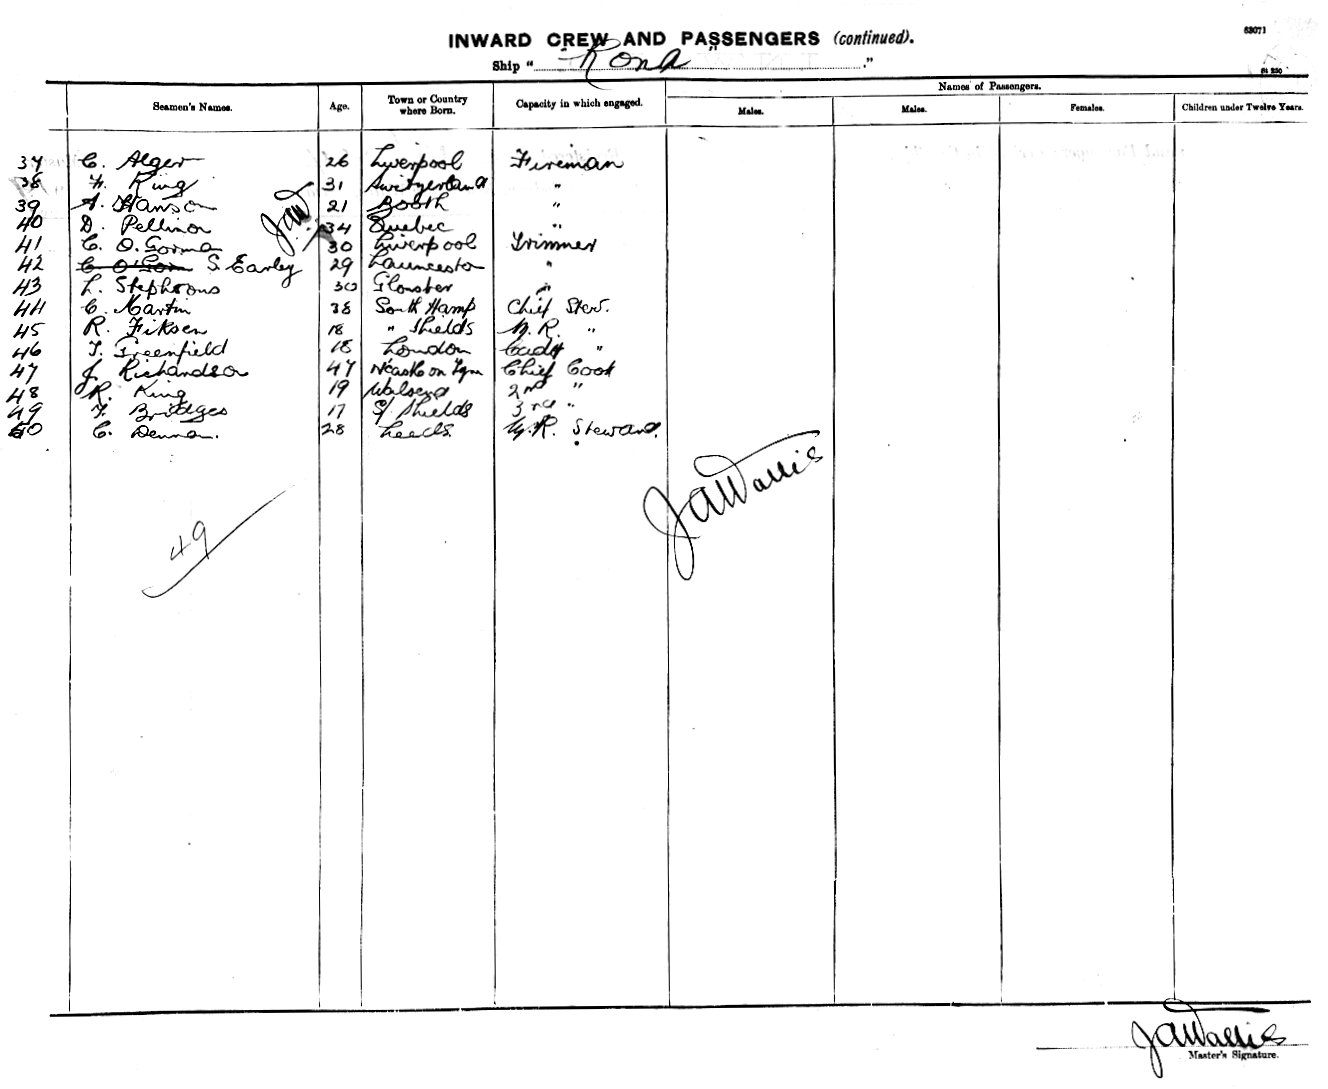 63071
INWARD CREW AND PASSENGERS (continued).
Ship " Rona "
Names of Passengers.
Seamen's Names. Age. Town or Country where Born. Capacity in which engaged. Males. Males. Females. Children under Twelve Years.
37 C. Alger 26 Liverpool Fireman
38 F. King 31 Switzerland "
39 A. Hanson 21 Booth "
40 D. Pellinor 34 Quebec "
JAW
41 C. O. Gorma 30 Liverpool Trimmer
42 C O'Gor S. Earley 29 Launceston "
43 L. Stephsous 30 Glouster "
44 C. Martin 38 South Hamp Chief Stew.
45 R. Fiksen 18 " Shields M. R. "
46 T. Greenfield 18 London Cadt "
47 J. Richardson 47 N'Castle on Tyn Chief Cook
48 R. King 19 Walsend 2nd "
49 F. Bridges 17 S/ Shields 3rd "
50 C. Denman. 28 Leeds. M. R. Steward.
JAWallis
49
JAWallis
Master's Signature.